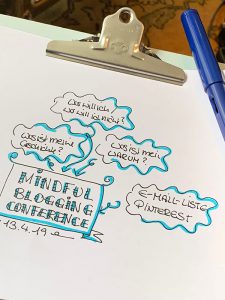 will ich,
wo will ich
Was ist meine
Geschichte?
Was ist mein
WARUM?
MINDFUL
BLOGGING
CONFERENCE
13.4.19
E-MAIL-LISTE
PINTEREST